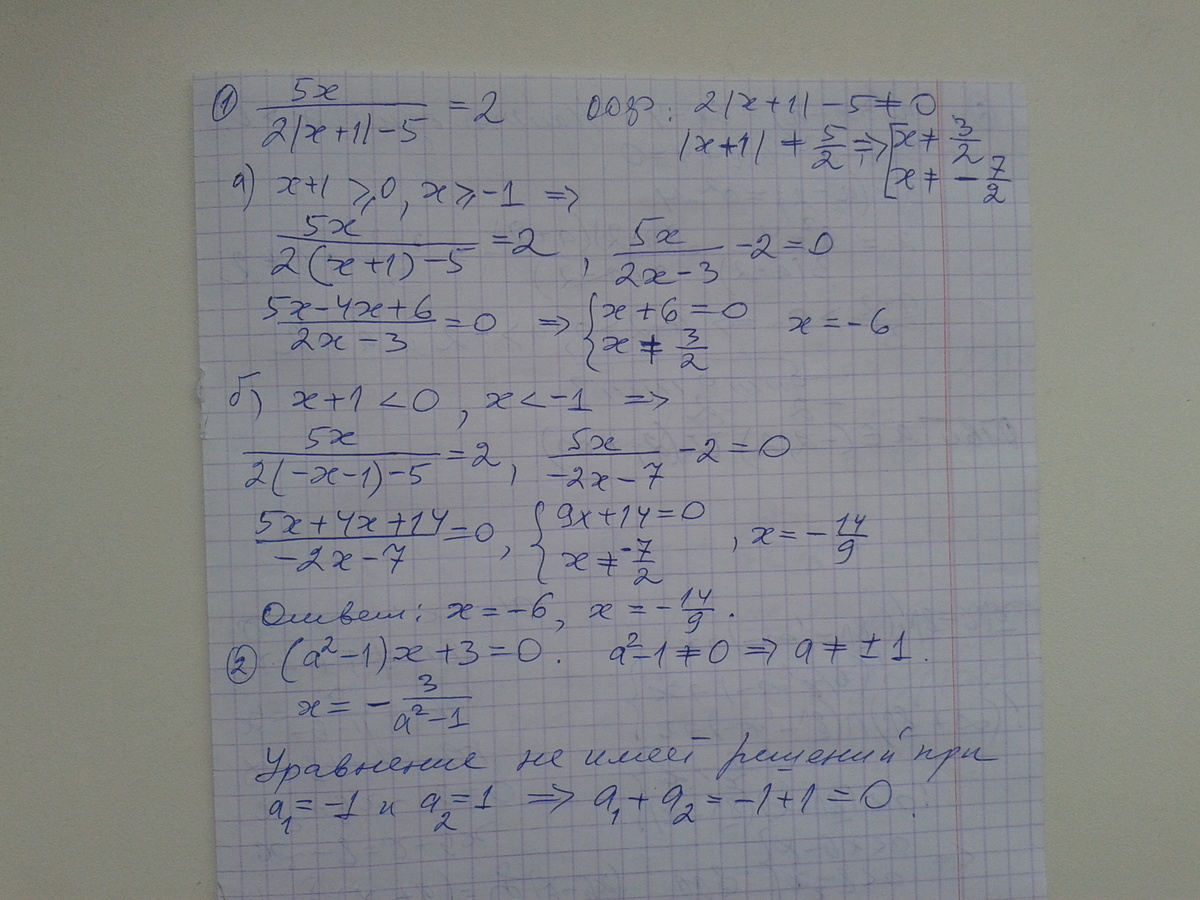 ① 5x/(2|x+1|-5) = 2   ООУ: 2|x+1|-5≠0
|x+1| ≠ 5/2 => [x≠ 3/2
x≠ -7/2
а) x+1 ⩾ 0, x ⩾ -1 =>
5x/(2(x+1)-5) = 2, 5x/(2x-3) -2=0
(5x-4x+6)/(2x-3) = 0 => {x+6=0   x=-6
x≠ 3/2
б) x+1<0, x<-1 =>
5x/(2(-x-1)-5) = 2, 5x/(-2x-7) -2=0
(5x+4x+14)/(-2x-7) = 0, {9x+14=0, x=-14/9
x≠ -7/2
Ответ: x=-6, x=-14/9.
② (a²-1)x+3=0. a²-1≠0 => a≠±1.
x= -3/(a²-1)
Уравнение не имеет решений при
a₁=-1 и a₂=1 => a₁+a₂=-1+1=0.